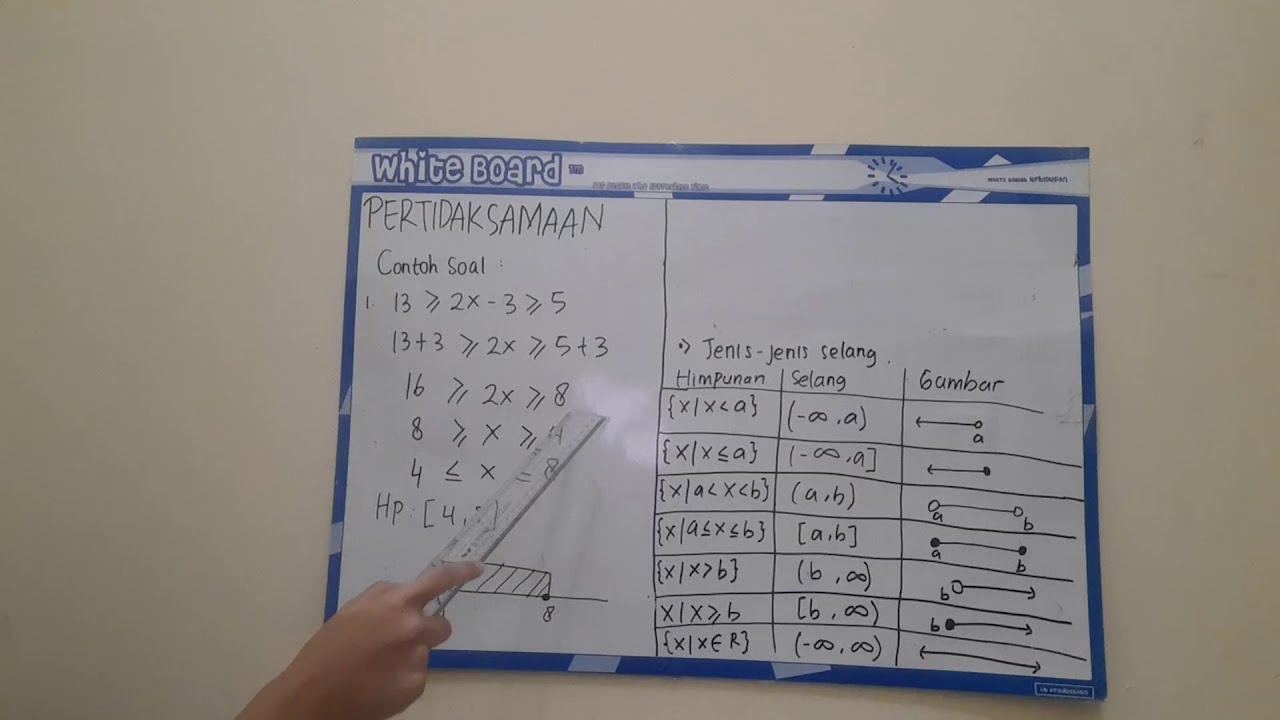 White Board TM
PERTIDAKSAMAAN
Contoh Soal :
1. 13 ⩾ 2x - 3 ⩾ 5
13+3 ⩾ 2x ⩾ 5+3
16 ⩾ 2x ⩾ 8
8 ⩾ x ⩾ 4
4 ≤ x = 8
Hp : [4,
8
•) Jenis-jenis selang.
Himpunan Selang Gambar
{x|x<a} (-∞,a) a
{x|x≤a} (-∞,a]
{x|a<x<b} (a,b) a b
{x|a≤x≤b} [a,b] a b
{x|x>b} (b,∞) b
x|x⩾b [b,∞) b
{x|x∈R} (-∞,∞)